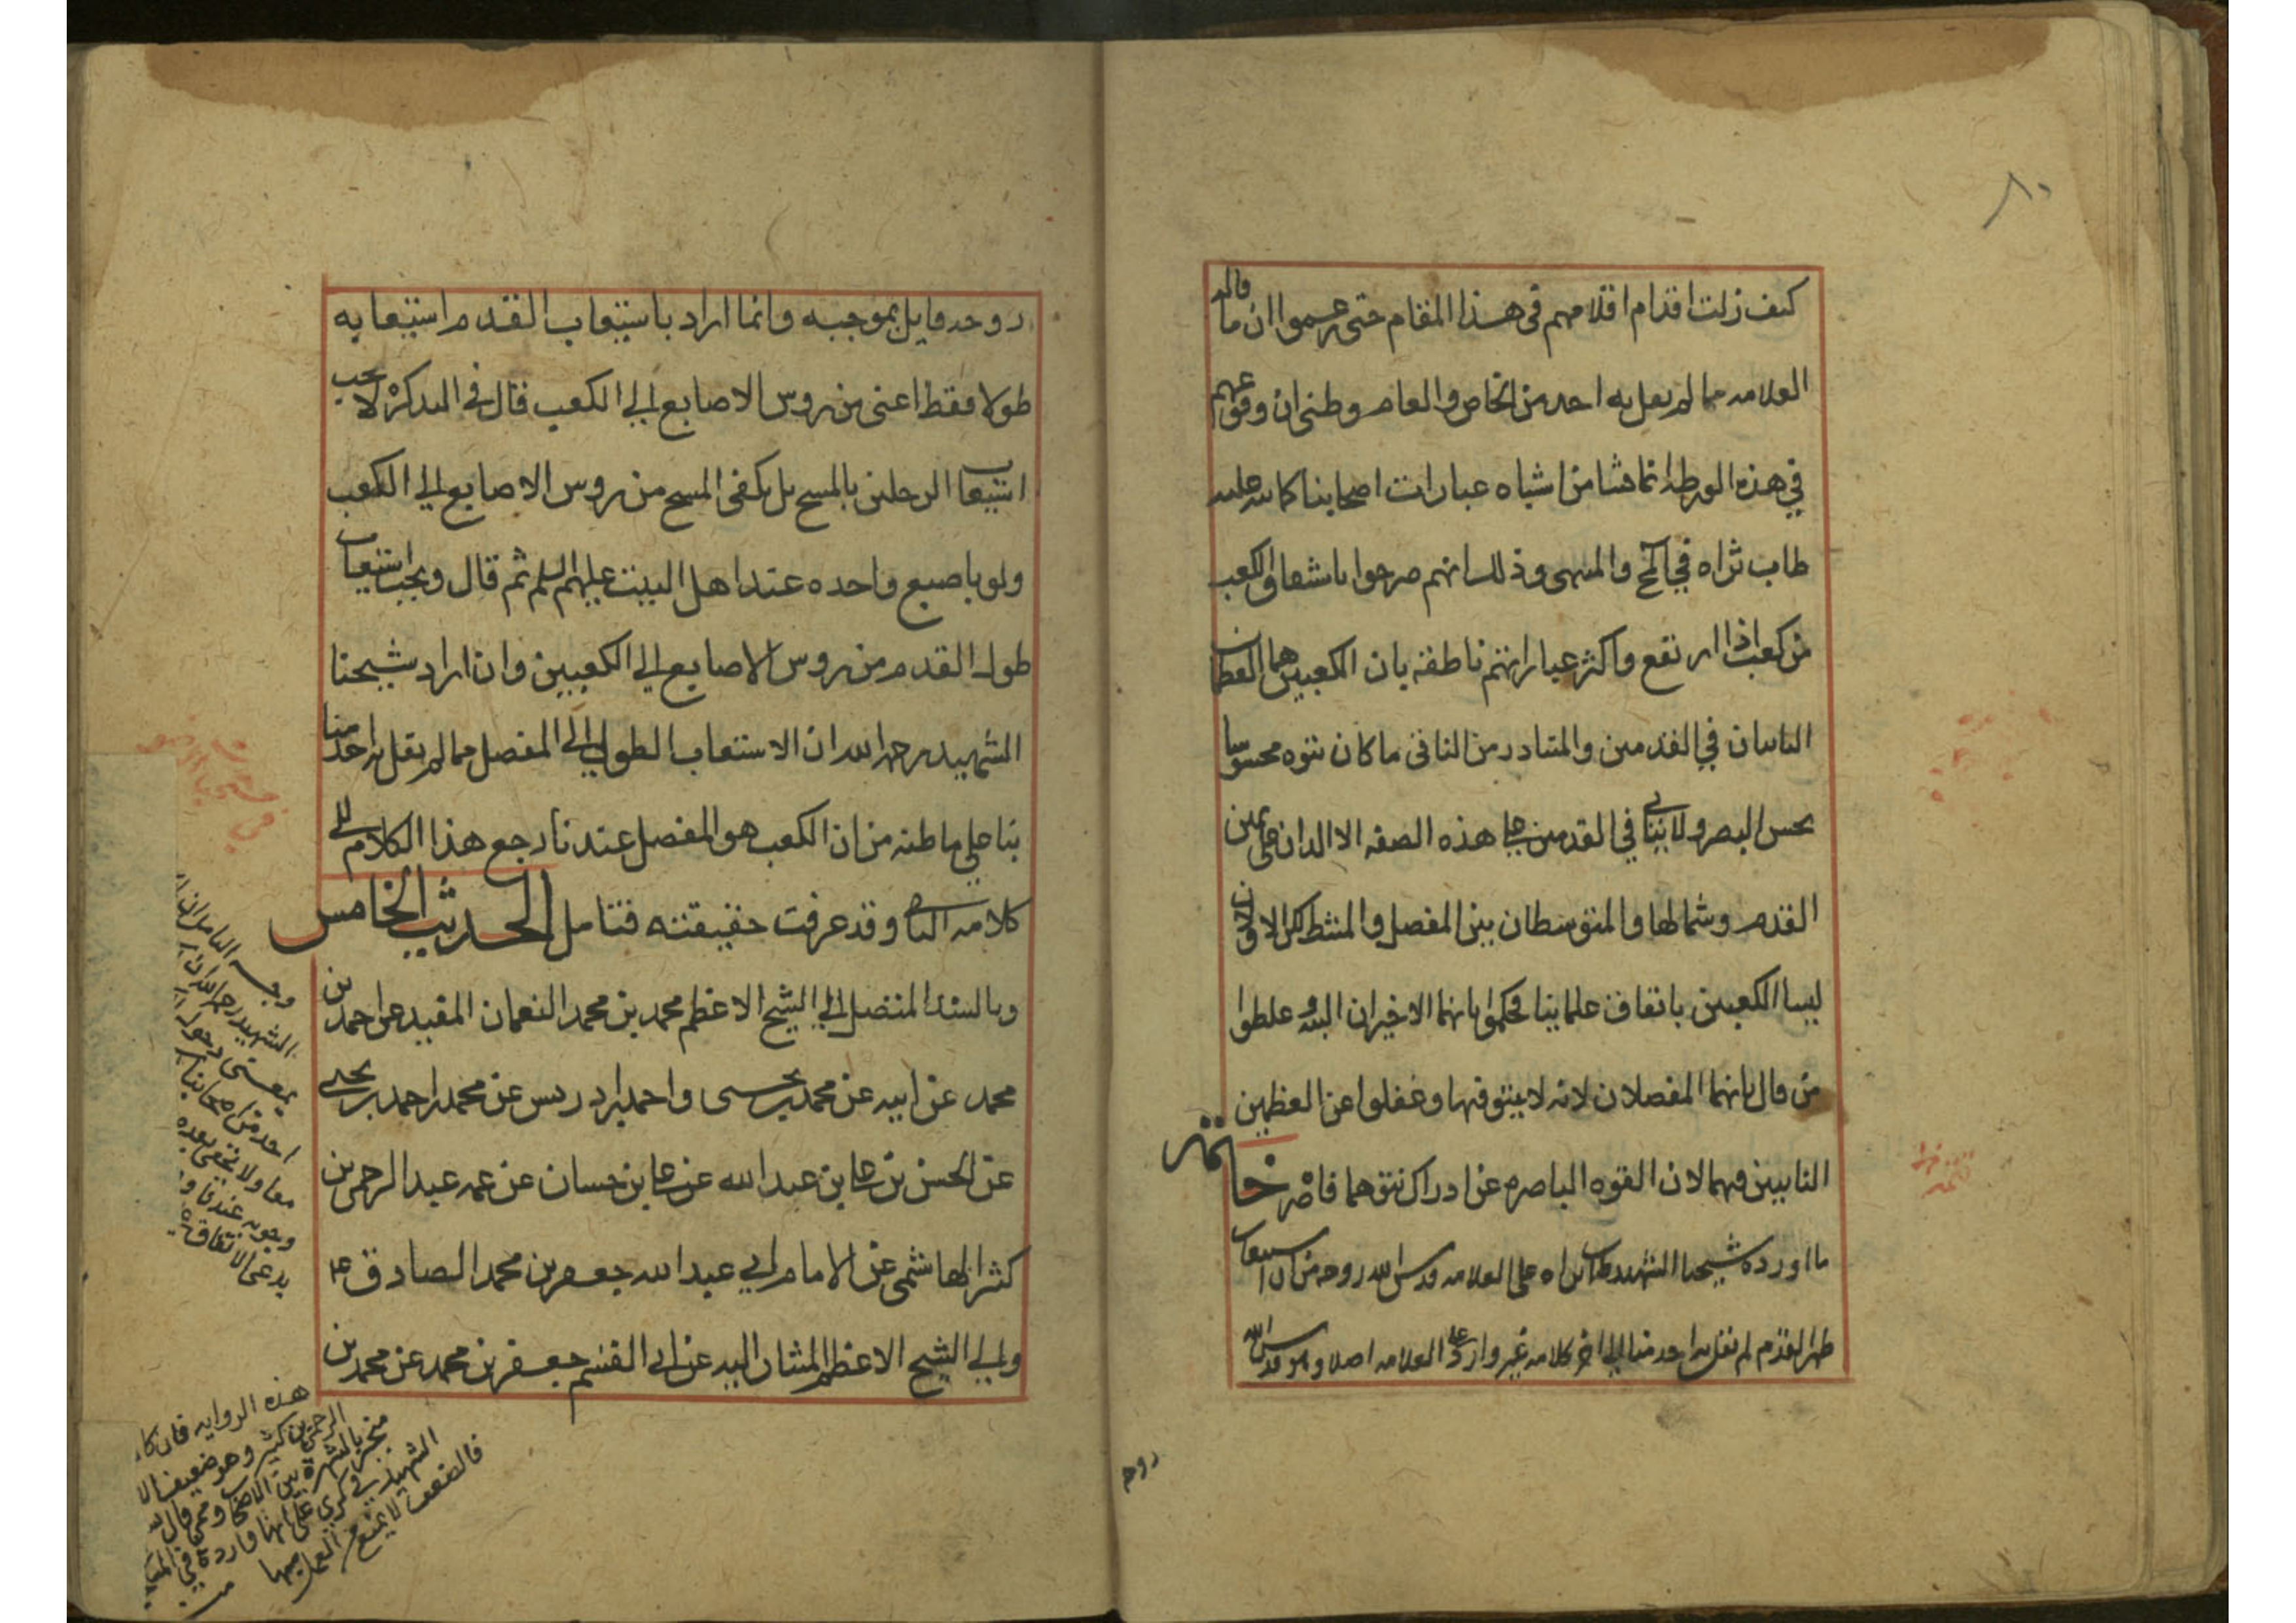 ٨٠
كيف زلت اقدام اقلامهم فى هذا المقام حتى زعموا ان ما قاله
العلامه مما لم يقل به احد من الخاص والعام وظنى ان وقوعهم
في هذه الورطه انما نشا من اشباه عبارات اصحابنا كما نبه عليه
طاب ثراه في المخ والمنتهى وذلك انهم صرحوا باشتقاق الكعب
من كعب اذا ارتفع واكثر عباراتهم ناطقه بان الكعبين هما العظمان
الناتيان في القدمين والمتبادر من الناتى ما كان نتوه محسوسا
بحس البصر ولا ناتى في القدمين على هذه الصفه الا اللذان على يمين
القدم وشمالها والمتوسطان بين المفصل والمشط لكن الاولان
ليسا الكعبين باتفاق علمائنا فحكموا بانهما الاخيران البته وغلطوا
من قال بانهما المفصلان لانه لا نتو فيها وغفلوا عن العظمين
الناتيين فيهما لان القوه الباصره عن ادراك نتوهما قاصره خاتمة
ما اورده شيخنا الشهيد طاب ثراه على العلامه قدس الله روحه من ان استيعاب
ظهر القدم لم يقل به احد منا الى اخر كلامه غير وارد على العلامه اصلا وهو قدس الله
روحه
روحه قايل بموجبه وانما اراد باستيعاب القدم استيعابه
طولا فقط اعنى من روس الاصابع الى الكعب قال في التذكره لا يجب
استيعاب الرجلين بالمسح بل يكفى المسح من روس الاصابع الى الكعب
ولو باصبع واحده عند اهل البيت عليهم السلم ثم قال ويجب استيعاب
طول القدم من روس الاصابع الى الكعبين وان اراد شيخنا
الشهيد رحمه الله ان الاستيعاب الطولى الى المفصل مما لم يقل به احد منا
بنا على ما ظنه من ان الكعب هو المفصل عندنا رجع هذا الكلام الى
كلامه الثانى وقد عرفت حقيقته فتامل الحديث الخامس
وبالسند المتصل الى الشيخ الاعظم محمد بن محمد النعمان المفيد عن احمد بن
محمد عن ابيه عن محمد بن يحيى واحمد بن ادريس عن محمد بن احمد بن يحيى
عن الحسن بن على بن عبد الله عن على بن حسان عن عمه عبد الرحمن بن
كثير الهاشمى عن الامام ابي عبد الله جعفر بن محمد الصادق ع
والى الشيخ الاعظم المشار اليه عن ابى القسم جعفر بن محمد عن محمد بن
وجه التامل ان
الشهيد رحمه الله ان
احد من اصحابنا
معا ولا يخفى بعده
وجوبه عندنا و
يدعى الاتفاق
هذه الروايه فان كا
الرحمن بن كثير وهو ضعيف الا
منجبر بالشهرة بين الاصحاب
فالضعف لا يمنع من العمل بها